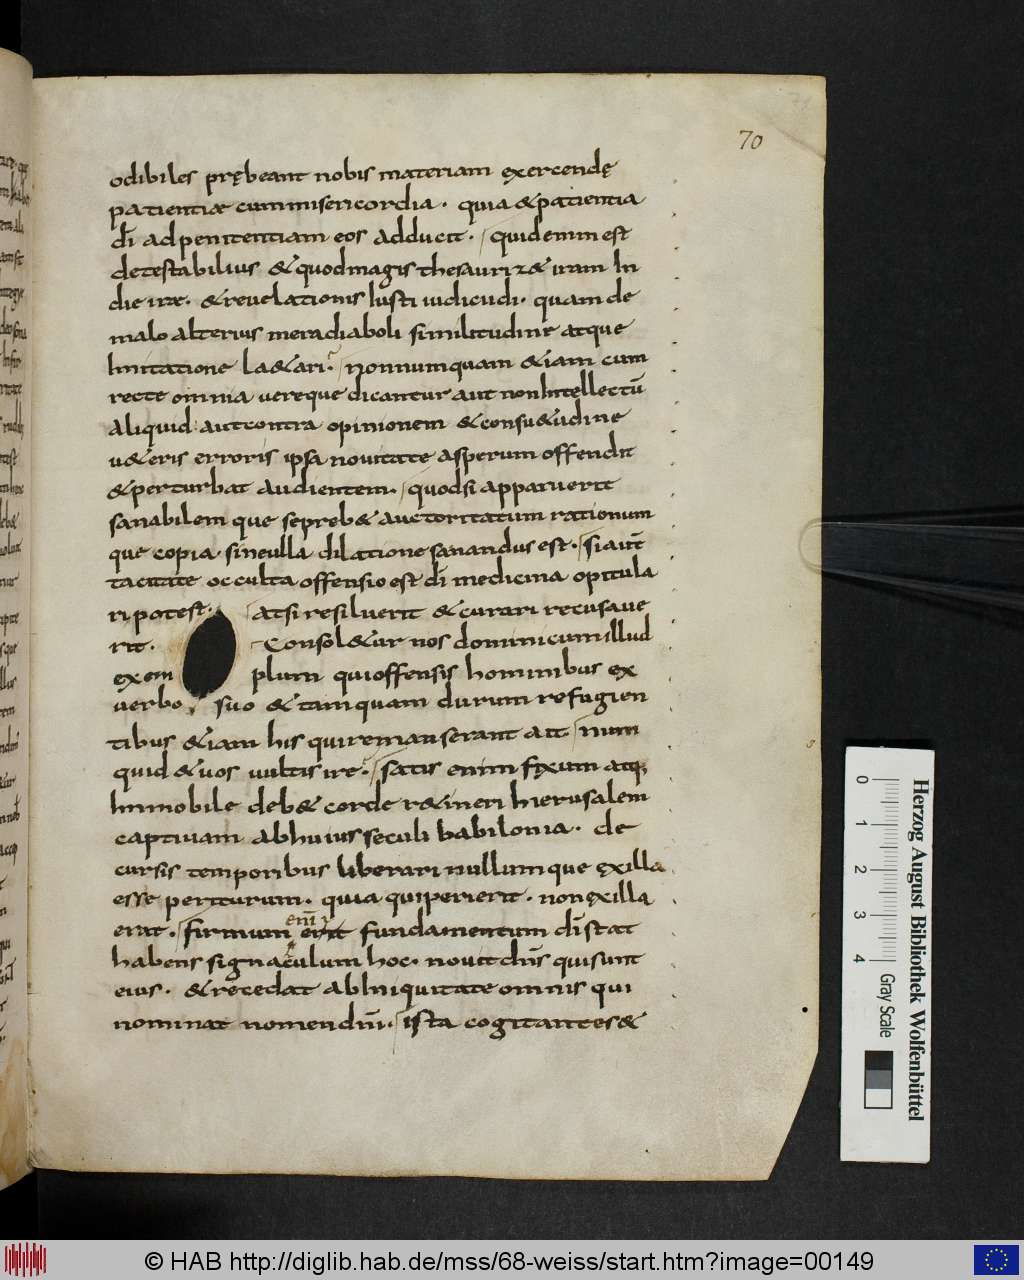 70
odibiles prębeant nobis materiam exercendę
patientiæ cum misericordia. quia & patientia
dī ad penitentiam eos adducit. quid enim est
detestabilius & quod magis thesauriz& iram In
die iræ. & reuelationis Iusti iudicii di. quam de
malo alterius mera diaboli similitudine atque
Imitatione l&ari. nonnumquam &iam cum
recte omnia uereque dicantur aut non Intellectū
aliquid aut contra opinionem & consu&udine
u&eris erroris ipsa nouitate asperum offendit
& perturbat audientem. quod si apparuerit
sanabilem que se preb& auctoritatum rationum
que copia sine ulla dilatione sanandus est. si aut̄
tacitate occulta offensio est dī medicina opitula
ri potest. at si resiluerit & curari recusaue
rit. Consol&ur nos dominicum illud
exem plum qui offensis hominibus ex
uerbo suo & tamquam durum refugien
tibus &iam his qui remanserant ait num
quid & uos uultis ire. satis enim fixum atq;
Immobile deb& corde r&ineri hierusalem
captiuam ab huius seculi babilonia. de
cursis temporibus liberari nullum que ex illa
esse periturum. quia qui perierit. non ex illa
enī
erat. firmum erit fundamentum dī stat
habens signaculum hoc. nouit dn̄s qui sunt
eius. & recedat ab Iniquitate omnis qui
nominat nomen dn̄i. ista cogitantes &
0 1 2 3 4
Herzog August Bibliothek Wolfenbüttel
Gray Scale
© HAB http://diglib.hab.de/mss/68-weiss/start.htm?image=00149